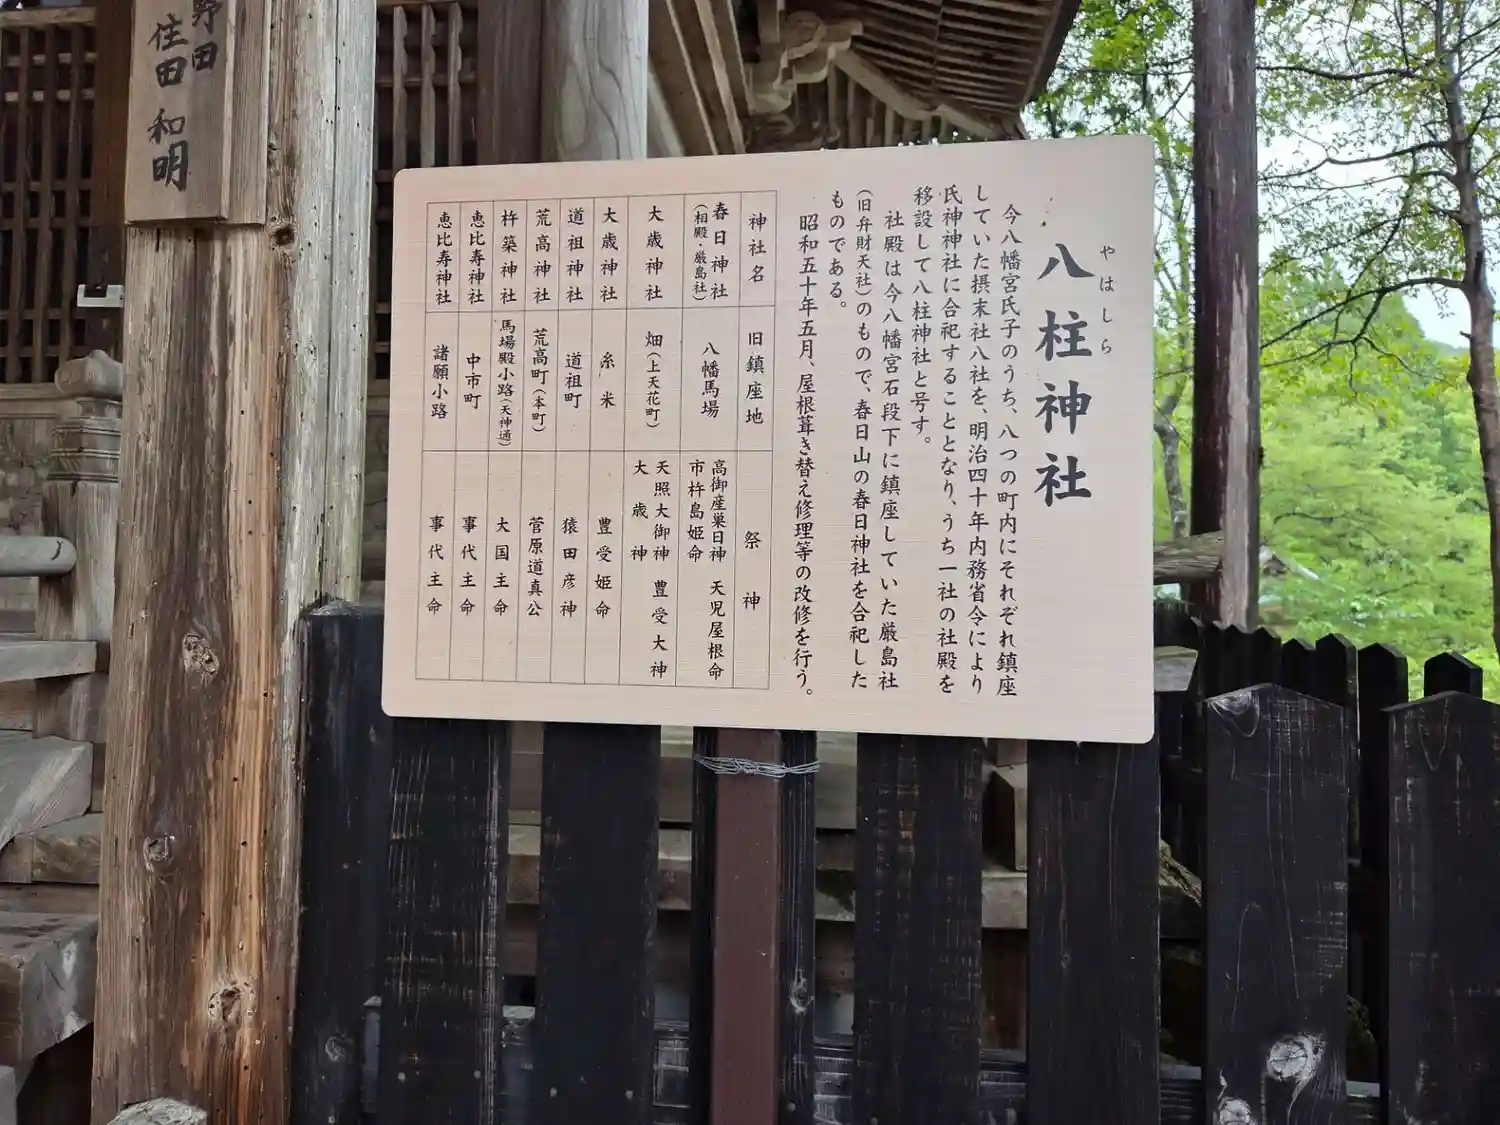 八柱神社
やはしら
今八幡宮氏子のうち、八つの町内にそれぞれ鎮座
していた摂末社八社を、明治四十年内務省令により
氏神神社に合祀することとなり、うち一社の社殿を
移設して八柱神社と号す。
社殿は今八幡宮石段下に鎮座していた厳島社
（旧弁財天社）のもので、春日山の春日神社を合祀した
ものである。
昭和五十年五月、屋根葺き替え修理等の改修を行う。
神社名 旧鎮座地 祭神
春日神社（相殿・厳島社） 八幡馬場 高御産巣日神 天児屋根命 市杵島姫命
大歳神社 畑（上天花町） 天照大御神 豊受大神 大歳神
大歳神社 糸米 豊受姫命
道祖神社 道祖町 猿田彦神
荒高神社 荒高町（本町） 菅原道真公
杵築神社 馬場殿小路（天神通） 大国主命
恵比寿神社 中市町 事代主命
恵比寿神社 諸願小路 事代主命
野田
住田 和明